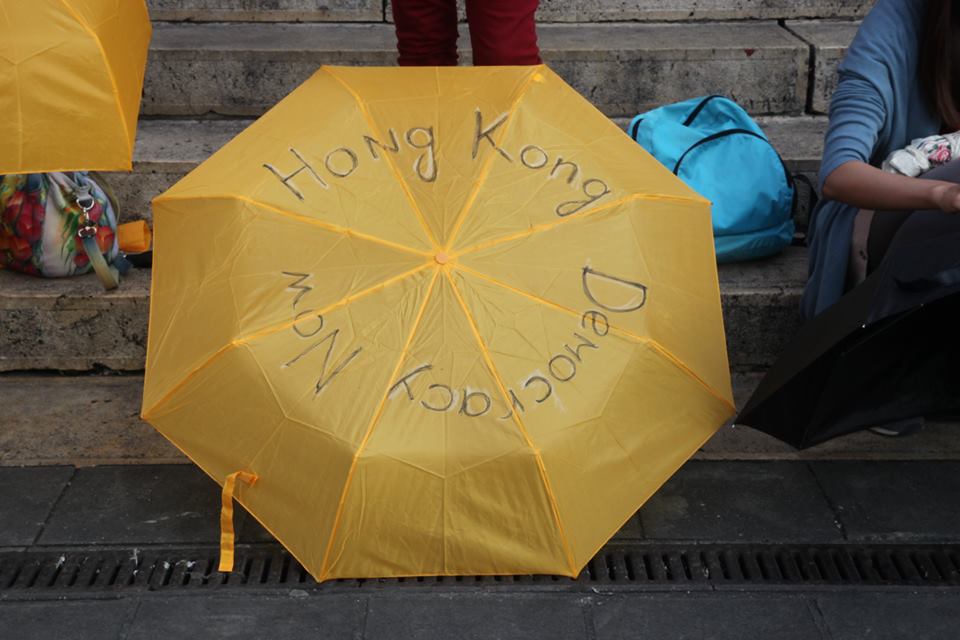 Hong Kong Democracy Now